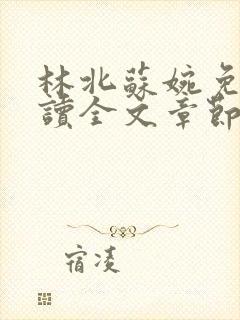 林北蘇婉免
讀全文章節
宿凌